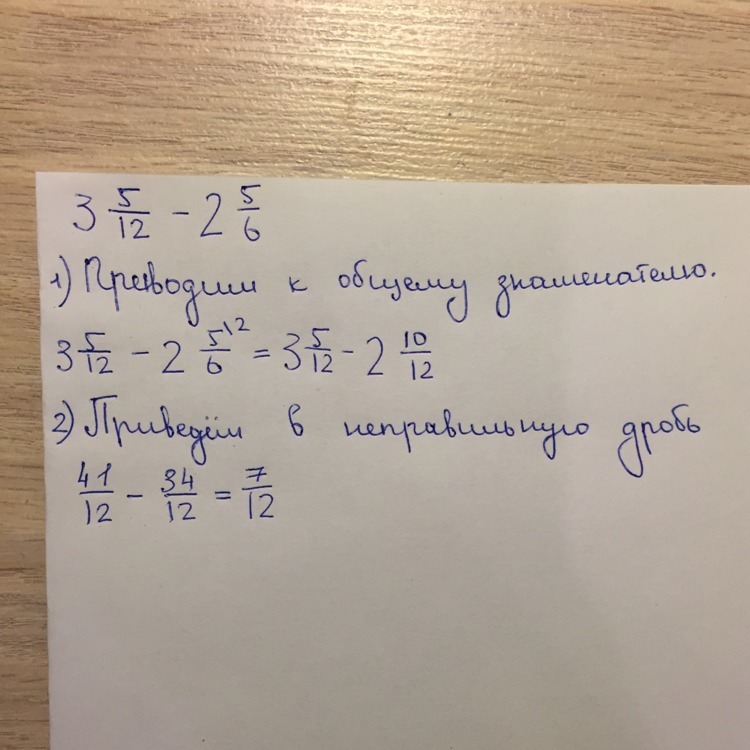 3 5/12 - 2 5/6
1) Приводим к общему знаменателю.
3 5/12 - 2 5\2/6 = 3 5/12 - 2 10/12
2) Приведём в неправильную дробь
41/12 - 34/12 = 7/12